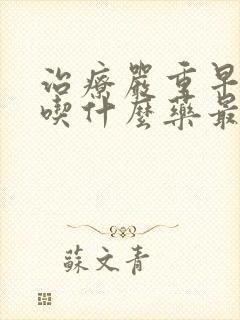 治療嚴重早
喫什麼藥最
蘇文青